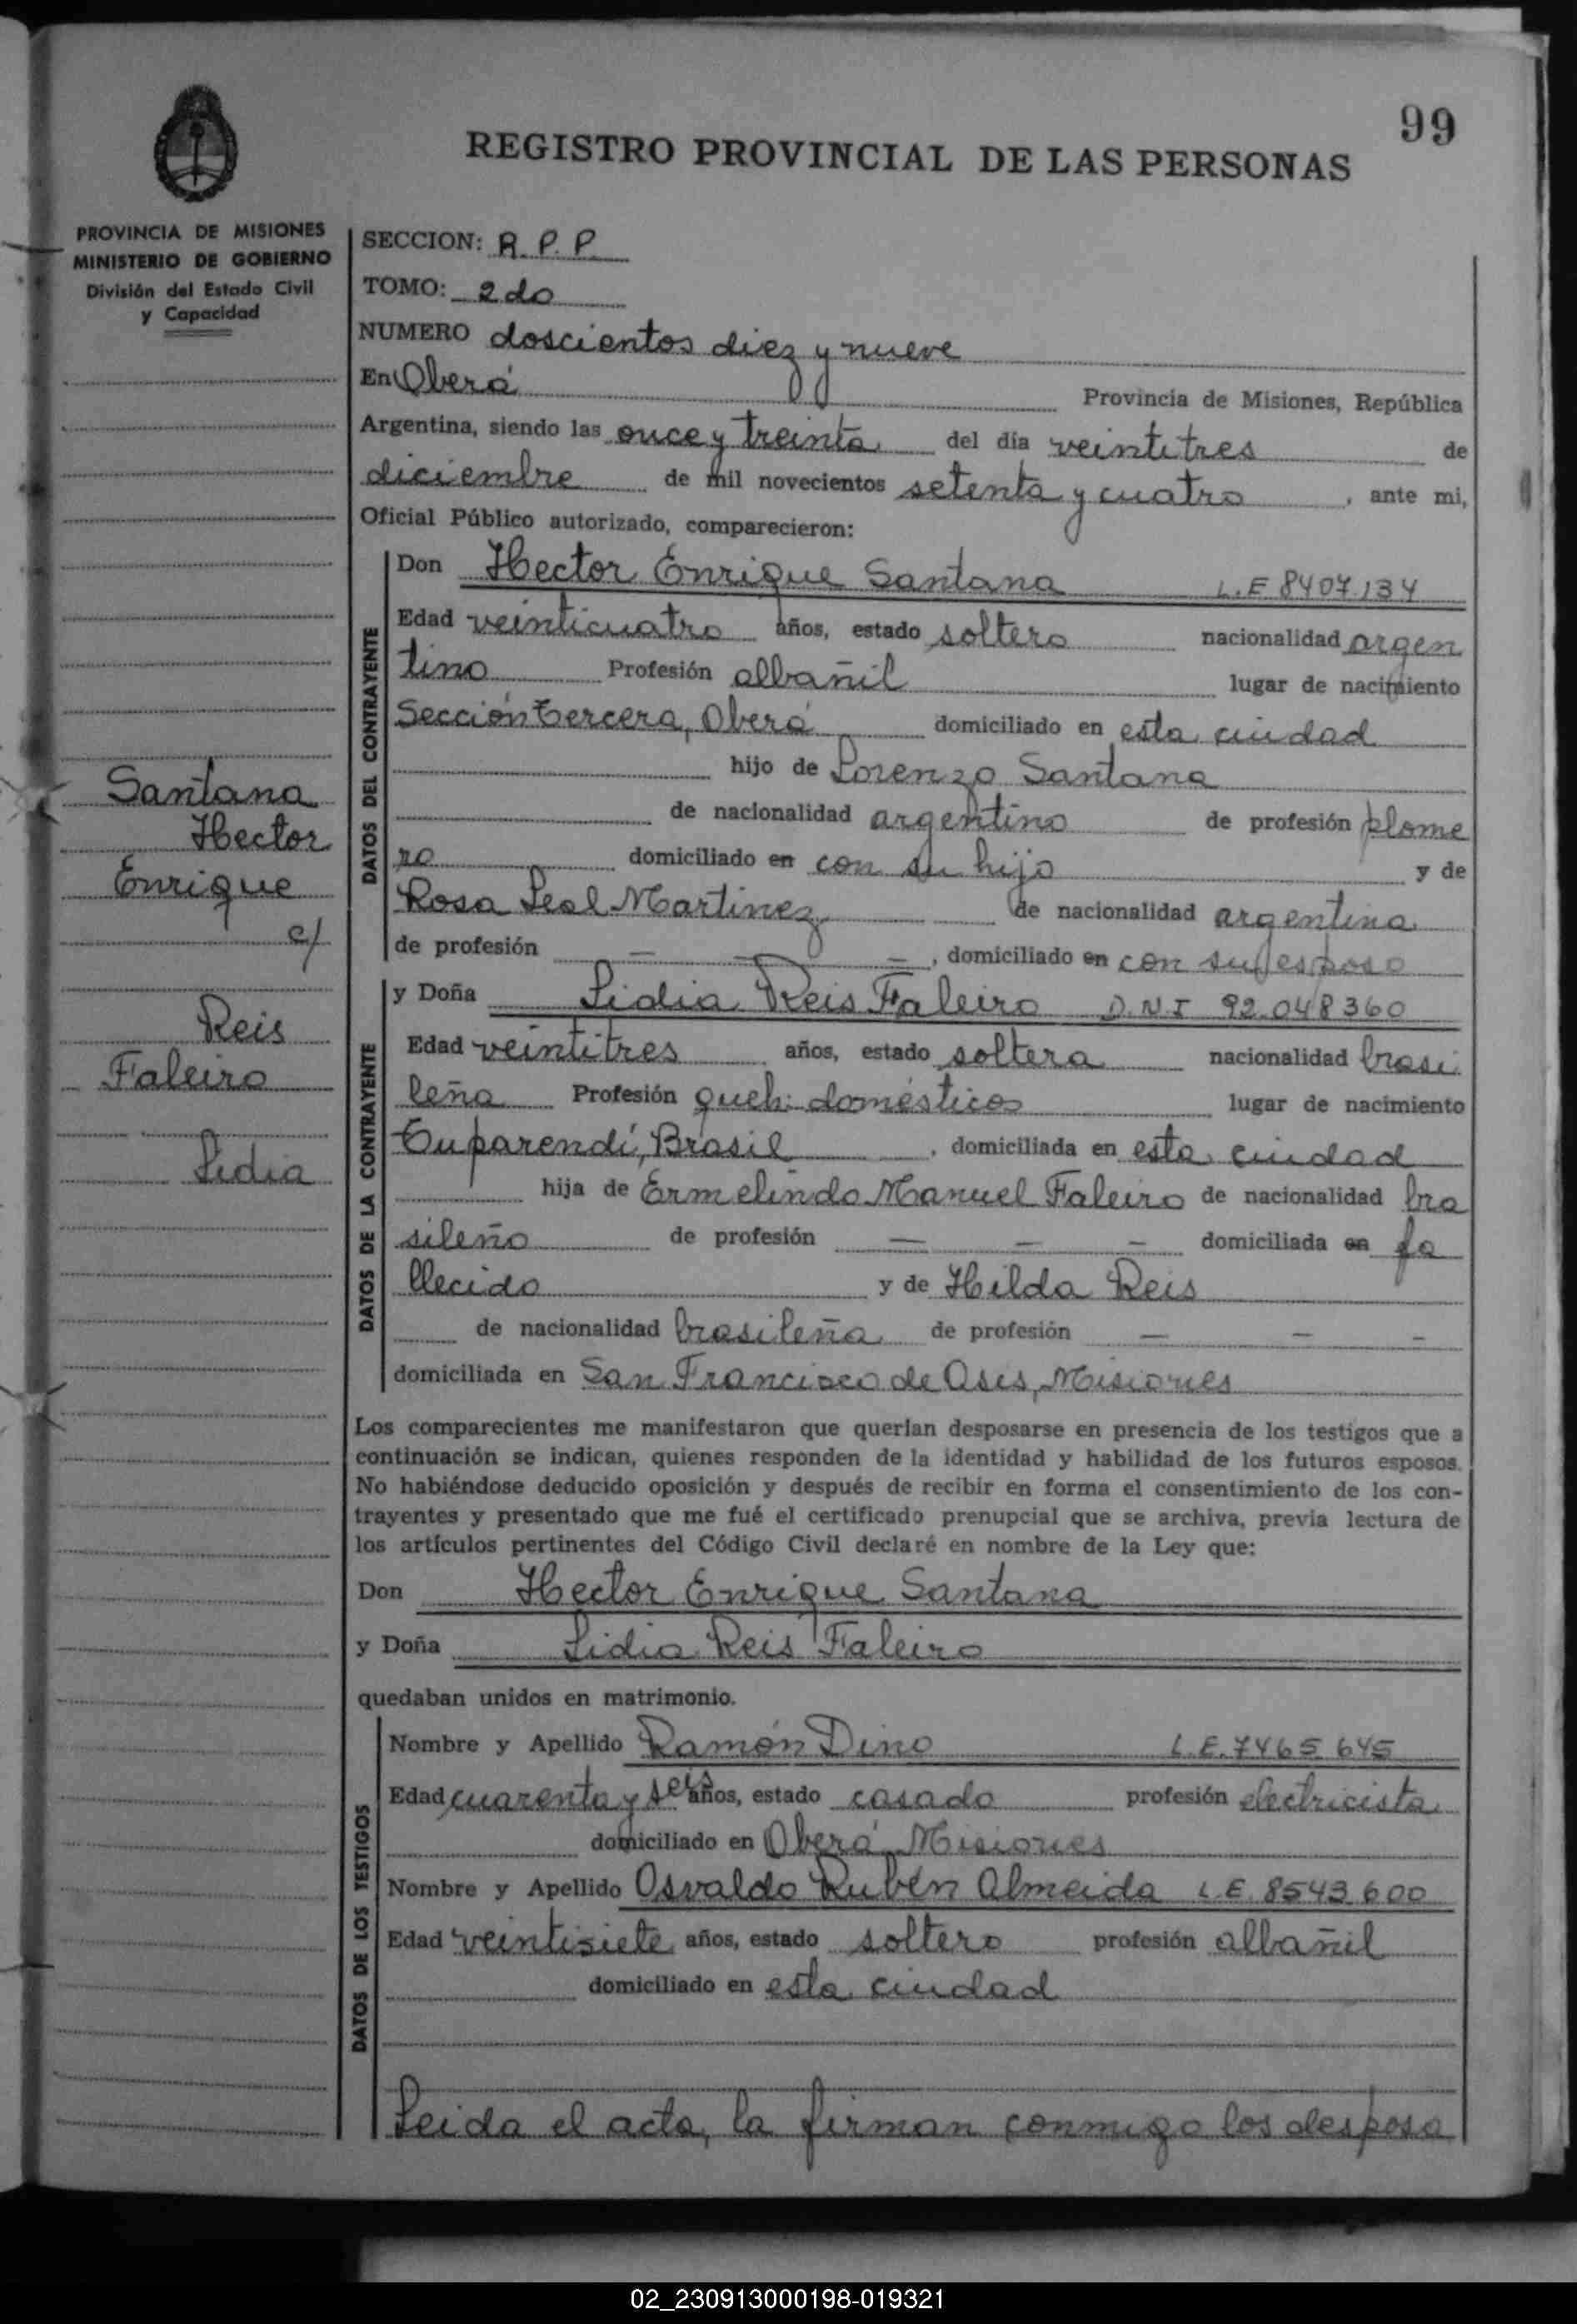 99
REGISTRO PROVINCIAL DE LAS PERSONAS
PROVINCIA DE MISIONES
MINISTERIO DE GOBIERNO
División del Estado Civil
y Capacidad
Santana
Hector
Enrique
c/
Reis
Faleiro
Lidia
SECCION: R. P. P.
TOMO: 2do
NUMERO doscientos diez y nueve
En Oberá Provincia de Misiones, República
Argentina, siendo las once y treinta del día veintitres de
diciembre de mil novecientos setenta y cuatro, ante mi,
Oficial Público autorizado, comparecieron:
DATOS DEL CONTRAYENTE
Don Hector Enrique Santana L.E 8407.134
Edad veinticuatro años, estado soltero nacionalidad argen
tino Profesión albañil lugar de nacimiento
Sección Tercera, Oberá domiciliado en esta ciudad
hijo de Lorenzo Santana
de nacionalidad argentino de profesión plome
ro domiciliado en con su hijo y de
Rosa Leal Martinez de nacionalidad argentina
de profesión — — —, domiciliado en con su esposo
DATOS DE LA CONTRAYENTE
y Doña Lidia Reis Faleiro D.N.I 92.048360
Edad veintitres años, estado soltera nacionalidad brasi
leña Profesión queh. domésticos lugar de nacimiento
Tuparendí, Brasil, domiciliada en esta ciudad
hija de Ermelindo Manuel Faleiro de nacionalidad bra
sileño de profesión — — — domiciliada en fa
llecido y de Hilda Reis
de nacionalidad brasileña de profesión — — —
domiciliada en San Francisco de Asis, Misiones
Los comparecientes me manifestaron que querían desposarse en presencia de los testigos que a
continuación se indican, quienes responden de la identidad y habilidad de los futuros esposos.
No habiéndose deducido oposición y después de recibir en forma el consentimiento de los con-
trayentes y presentado que me fué el certificado prenupcial que se archiva, previa lectura de
los artículos pertinentes del Código Civil declaré en nombre de la Ley que:
Don Hector Enrique Santana
y Doña Lidia Reis Faleiro
quedaban unidos en matrimonio.
DATOS DE LOS TESTIGOS
Nombre y Apellido Ramón Dino L.E. 7465.645
Edad cuarenta y seis años, estado casado profesión electricista
domiciliado en Oberá Misiones
Nombre y Apellido Osvaldo Rubén Almeida L.E. 8543.600
Edad veintisiete años, estado soltero profesión albañil
domiciliado en esta ciudad
Leida el acta, la firman conmigo los desposa
02_230913000198-019321